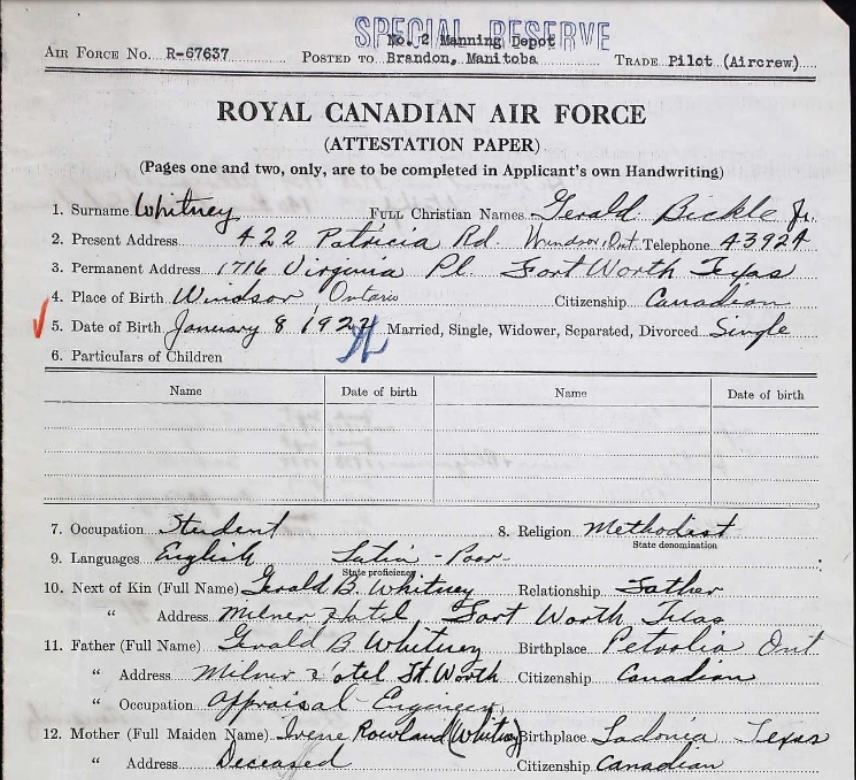 SPECIAL RESERVE
No. 2 Manning Depot
AIR FORCE NO. R-67637 POSTED TO Brandon, Manitoba TRADE Pilot (Aircrew)
ROYAL CANADIAN AIR FORCE
(ATTESTATION PAPER)
(Pages one and two, only, are to be completed in Applicant's own Handwriting)
1. Surname Whitney FULL Christian Names Gerald Bickle Jr.
2. Present Address 422 Patricia Rd. Windsor, Ont. Telephone 43924
3. Permanent Address 1716 Virginia Pl. Fort Worth Texas
4. Place of Birth Windsor, Ontario Citizenship Canadian
5. Date of Birth January 8 1922 Married, Single, Widower, Separated, Divorced Single
6. Particulars of Children
Name Date of birth Name Date of birth
7. Occupation Student 8. Religion Methodist
State denomination
9. Languages English Latin - Poor-
State proficiency
10. Next of Kin (Full Name) Gerald B. Whitney Relationship Father
" Address Milner Hotel, Fort Worth Texas
11. Father (Full Name) Gerald B Whitney Birthplace Petrolia Ont
" Address Milner Hotel Ft. Worth Citizenship Canadian
" Occupation Appraisal Engineer
12. Mother (Full Maiden Name) Irene Rowland (Whitney) Birthplace Ladonia Texas
" Address Deceased Citizenship Canadian